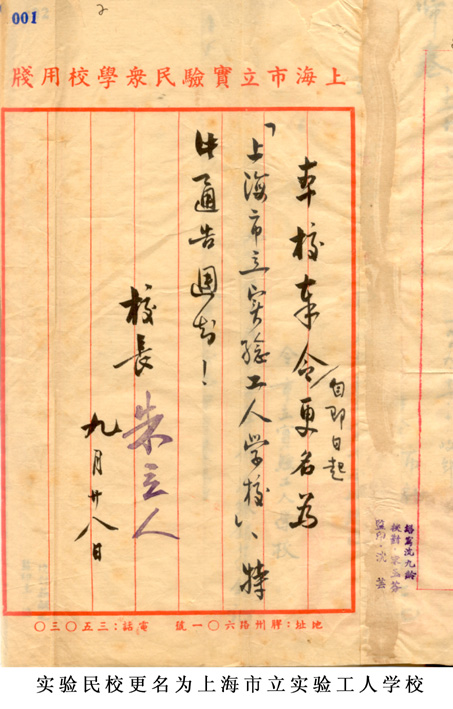 001
2
上海市立實驗民衆學校用牋
本校奉令自即日起更名为
「上海市立实验工人学校」、特
此通告週知！
校長 朱立人
九月廿八日
繕寫沈九齡
校對
監印 沈
地址：膠州路六〇一號 電話：三五〇三〇
实验民校更名为上海市立实验工人学校